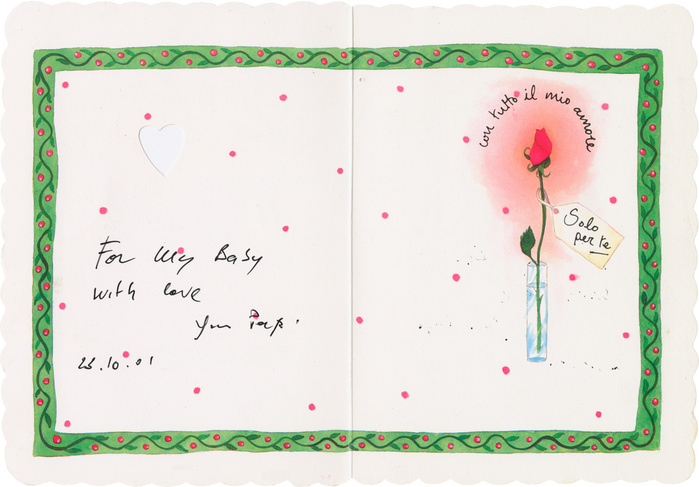 For My Baby
with love
your Papi.
23.10.01
con tutto il mio amore
Solo
per te